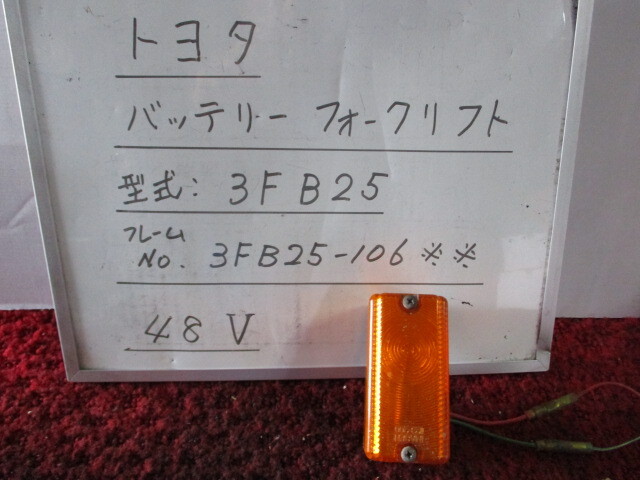 トヨタ
バッテリー フォークリフト
型式: 3FB25
フレーム
No. 3FB25-106※※
48V